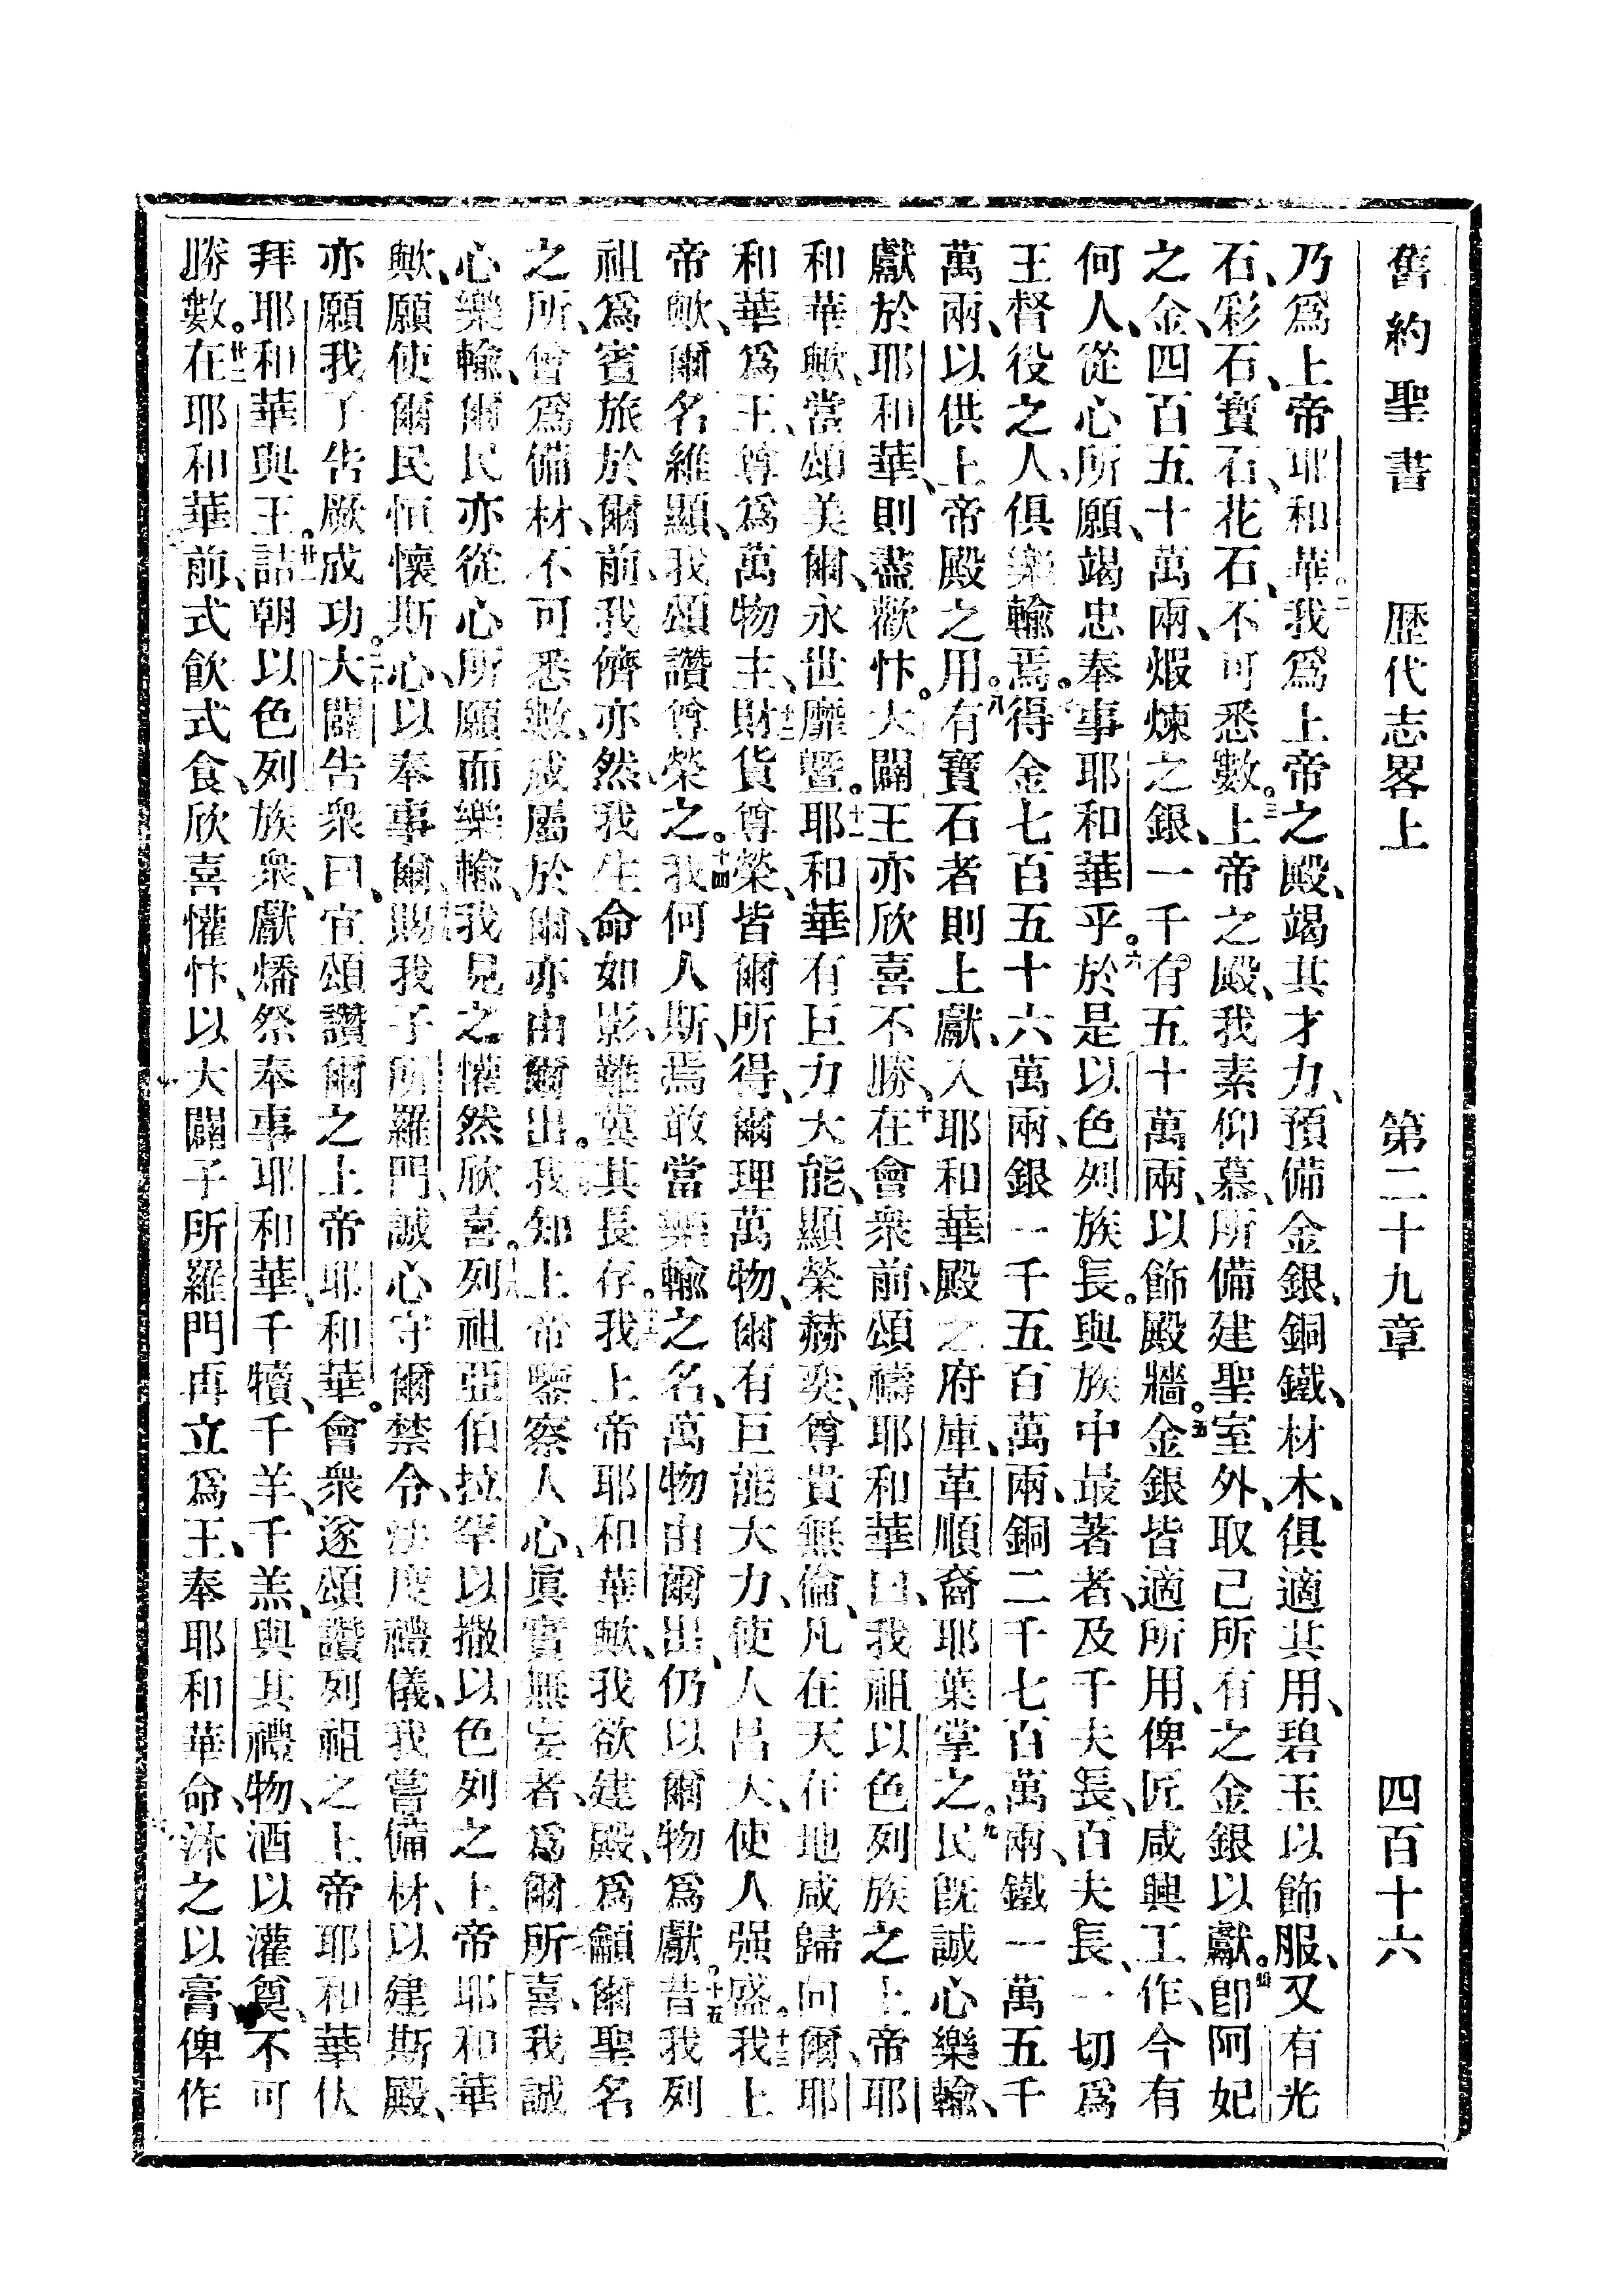 舊約聖書 歷代志畧上 第二十九章 四百十六
乃爲上帝耶和華。二我爲上帝之殿、竭其才力、預備金銀、銅鐵、材木、俱適其用、碧玉以飾服、又有光
石、彩石、寶石、花石、不可悉數。三上帝之殿、我素仰慕、所備建聖室外、取己所有之金銀以獻。四卽阿妃
之金、四百五十萬兩、煆煉之銀、一千有五十萬兩、以飾殿牆。五金銀皆適所用、俾匠咸興工作、今有
何人、從心所願、竭忠奉事耶和華乎。六於是以色列族長。與族中最著者、及千夫長、百夫長、一切爲
王督役之人、俱樂輸焉。七得金七百五十六萬兩、銀一千五百萬兩、銅二千七百萬兩、鐵一萬五千
萬兩、以供上帝殿之用。八有寶石者則上獻、入耶和華殿之府庫、革順裔耶葉掌之。九民旣誠心樂輸、
獻於耶和華、則盡歡忭。大闢王亦欣喜不勝、十在會衆前、頌禱耶和華曰、我祖以色列族之上帝耶
和華歟、當頌美爾、永世靡曁。十一耶和華有巨力大能、顯榮赫奕、尊貴無倫、凡在天在地咸歸向爾、耶
和華爲王、尊爲萬物主、十二財貨尊榮、皆爾所得、爾理萬物、爾有巨能大力、使人昌大、使人强盛。十三我上
帝歟、爾名維顯、我頌讚尊榮之。十四我何人斯、焉敢當樂輸之名、萬物由爾出、仍以爾物爲獻。十五昔我列
祖爲賓旅於爾前、我儕亦然、我生命如影、難冀其長存。十六我上帝耶和華歟、我欲建殿、爲籲爾聖名
之所、曾爲備材、不可悉數、咸屬於爾、亦由爾出。我知上帝鑒察人心、眞實無妄者、爲爾所喜、我誠
心樂輸、爾民亦從心所願而樂輸、我見之懽然欣喜。列祖亞伯拉罕以撒以色列之上帝耶和華
歟、願使爾民恒懷斯心、以奉事爾、賜我子所羅門、誠心守爾禁令、法度禮儀、我嘗備材、以建斯殿、
亦願我子告厥成功。二十大闢告衆曰、宜頌讚爾之上帝耶和華。會衆遂頌讚列祖之上帝耶和華伏
拜耶和華與王。廿一詰朝以色列族衆、獻燔祭奉事耶和華、千犢、千羊、千羔、與其禮物、酒以灌奠、不可
勝數。廿二在耶和華前、式飮式食、欣喜懽忭、以大闢子所羅門再立爲王、奉耶和華命、沐之以膏俾作